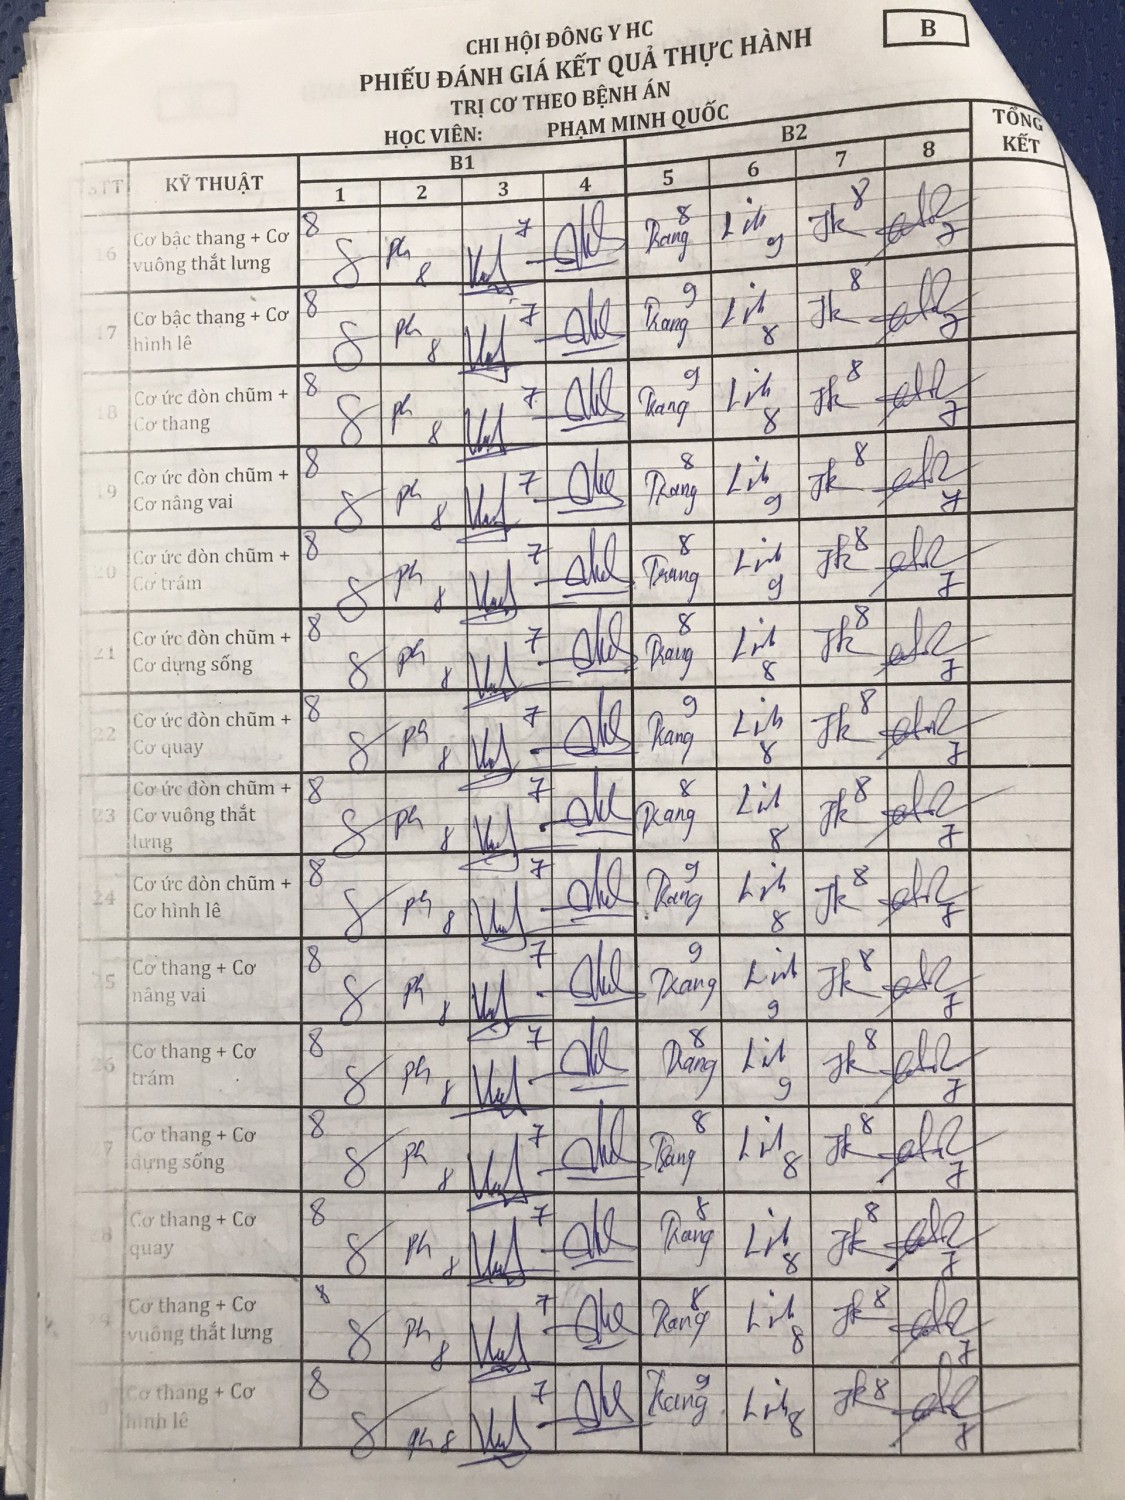 CHI HỘI ĐÔNG Y HC
B
PHIẾU ĐÁNH GIÁ KẾT QUẢ THỰC HÀNH
TRỊ CƠ THEO BỆNH ÁN
HỌC VIÊN: PHẠM MINH QUỐC
STT KỸ THUẬT B1 B2 TỔNG KẾT
1 2 3 4 5 6 7 8
16 Cơ bậc thang + Cơ vuông thắt lưng 8 8 Ph 8 7 Trang 8 Linh 9 Jk 8 7
17 Cơ bậc thang + Cơ hình lê 8 8 ph 8 7 Trang 9 Linh 8 Jk 8 7
18 Cơ ức đòn chũm + Cơ thang 8 8 ph 8 7 Trang 9 Linh 8 Jk 8 7
19 Cơ ức đòn chũm + Cơ nâng vai 8 8 ph 8 7 Trang 8 Linh 9 Jk 8 7
20 Cơ ức đòn chũm + Cơ trám 8 8 ph 8 7 Trang 8 Linh 9 Jk 8 7
21 Cơ ức đòn chũm + Cơ dựng sống 8 8 ph 8 7 Trang 8 Linh 8 Jk 8 7
22 Cơ ức đòn chũm + Cơ quay 8 8 ph 8 7 Trang 9 Linh 8 Jk 8 7
23 Cơ ức đòn chũm + Cơ vuông thắt lưng 8 8 ph 8 7 Trang 8 Linh 8 Jk 8 7
24 Cơ ức đòn chũm + Cơ hình lê 8 8 ph 8 7 Trang 9 Linh 8 Jk 8 7
25 Cơ thang + Cơ nâng vai 8 8 ph 8 7 Trang 9 Linh 9 Jk 8
26 Cơ thang + Cơ trám 8 8 ph 8 7 Trang 8 Linh 9 Jk 8 7
7 Cơ thang + Cơ dựng sống 8 8 ph 8 7 Trang 8 Linh 8 Jk 8 7
8 Cơ thang + Cơ quay 8 8 ph 8 7 Trang 8 Linh 8 Jk 8 7
Cơ thang + Cơ vuông thắt lưng 8 8 ph 8 7 Trang 8 Linh 8 Jk 8 7
Cơ thang + Cơ hình lê 8 8 ph 8 7 Trang 9 Linh 8 Jk 8 7